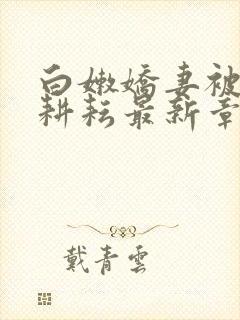 白嫩嬌妻被
耕耘最新章
戴青雲